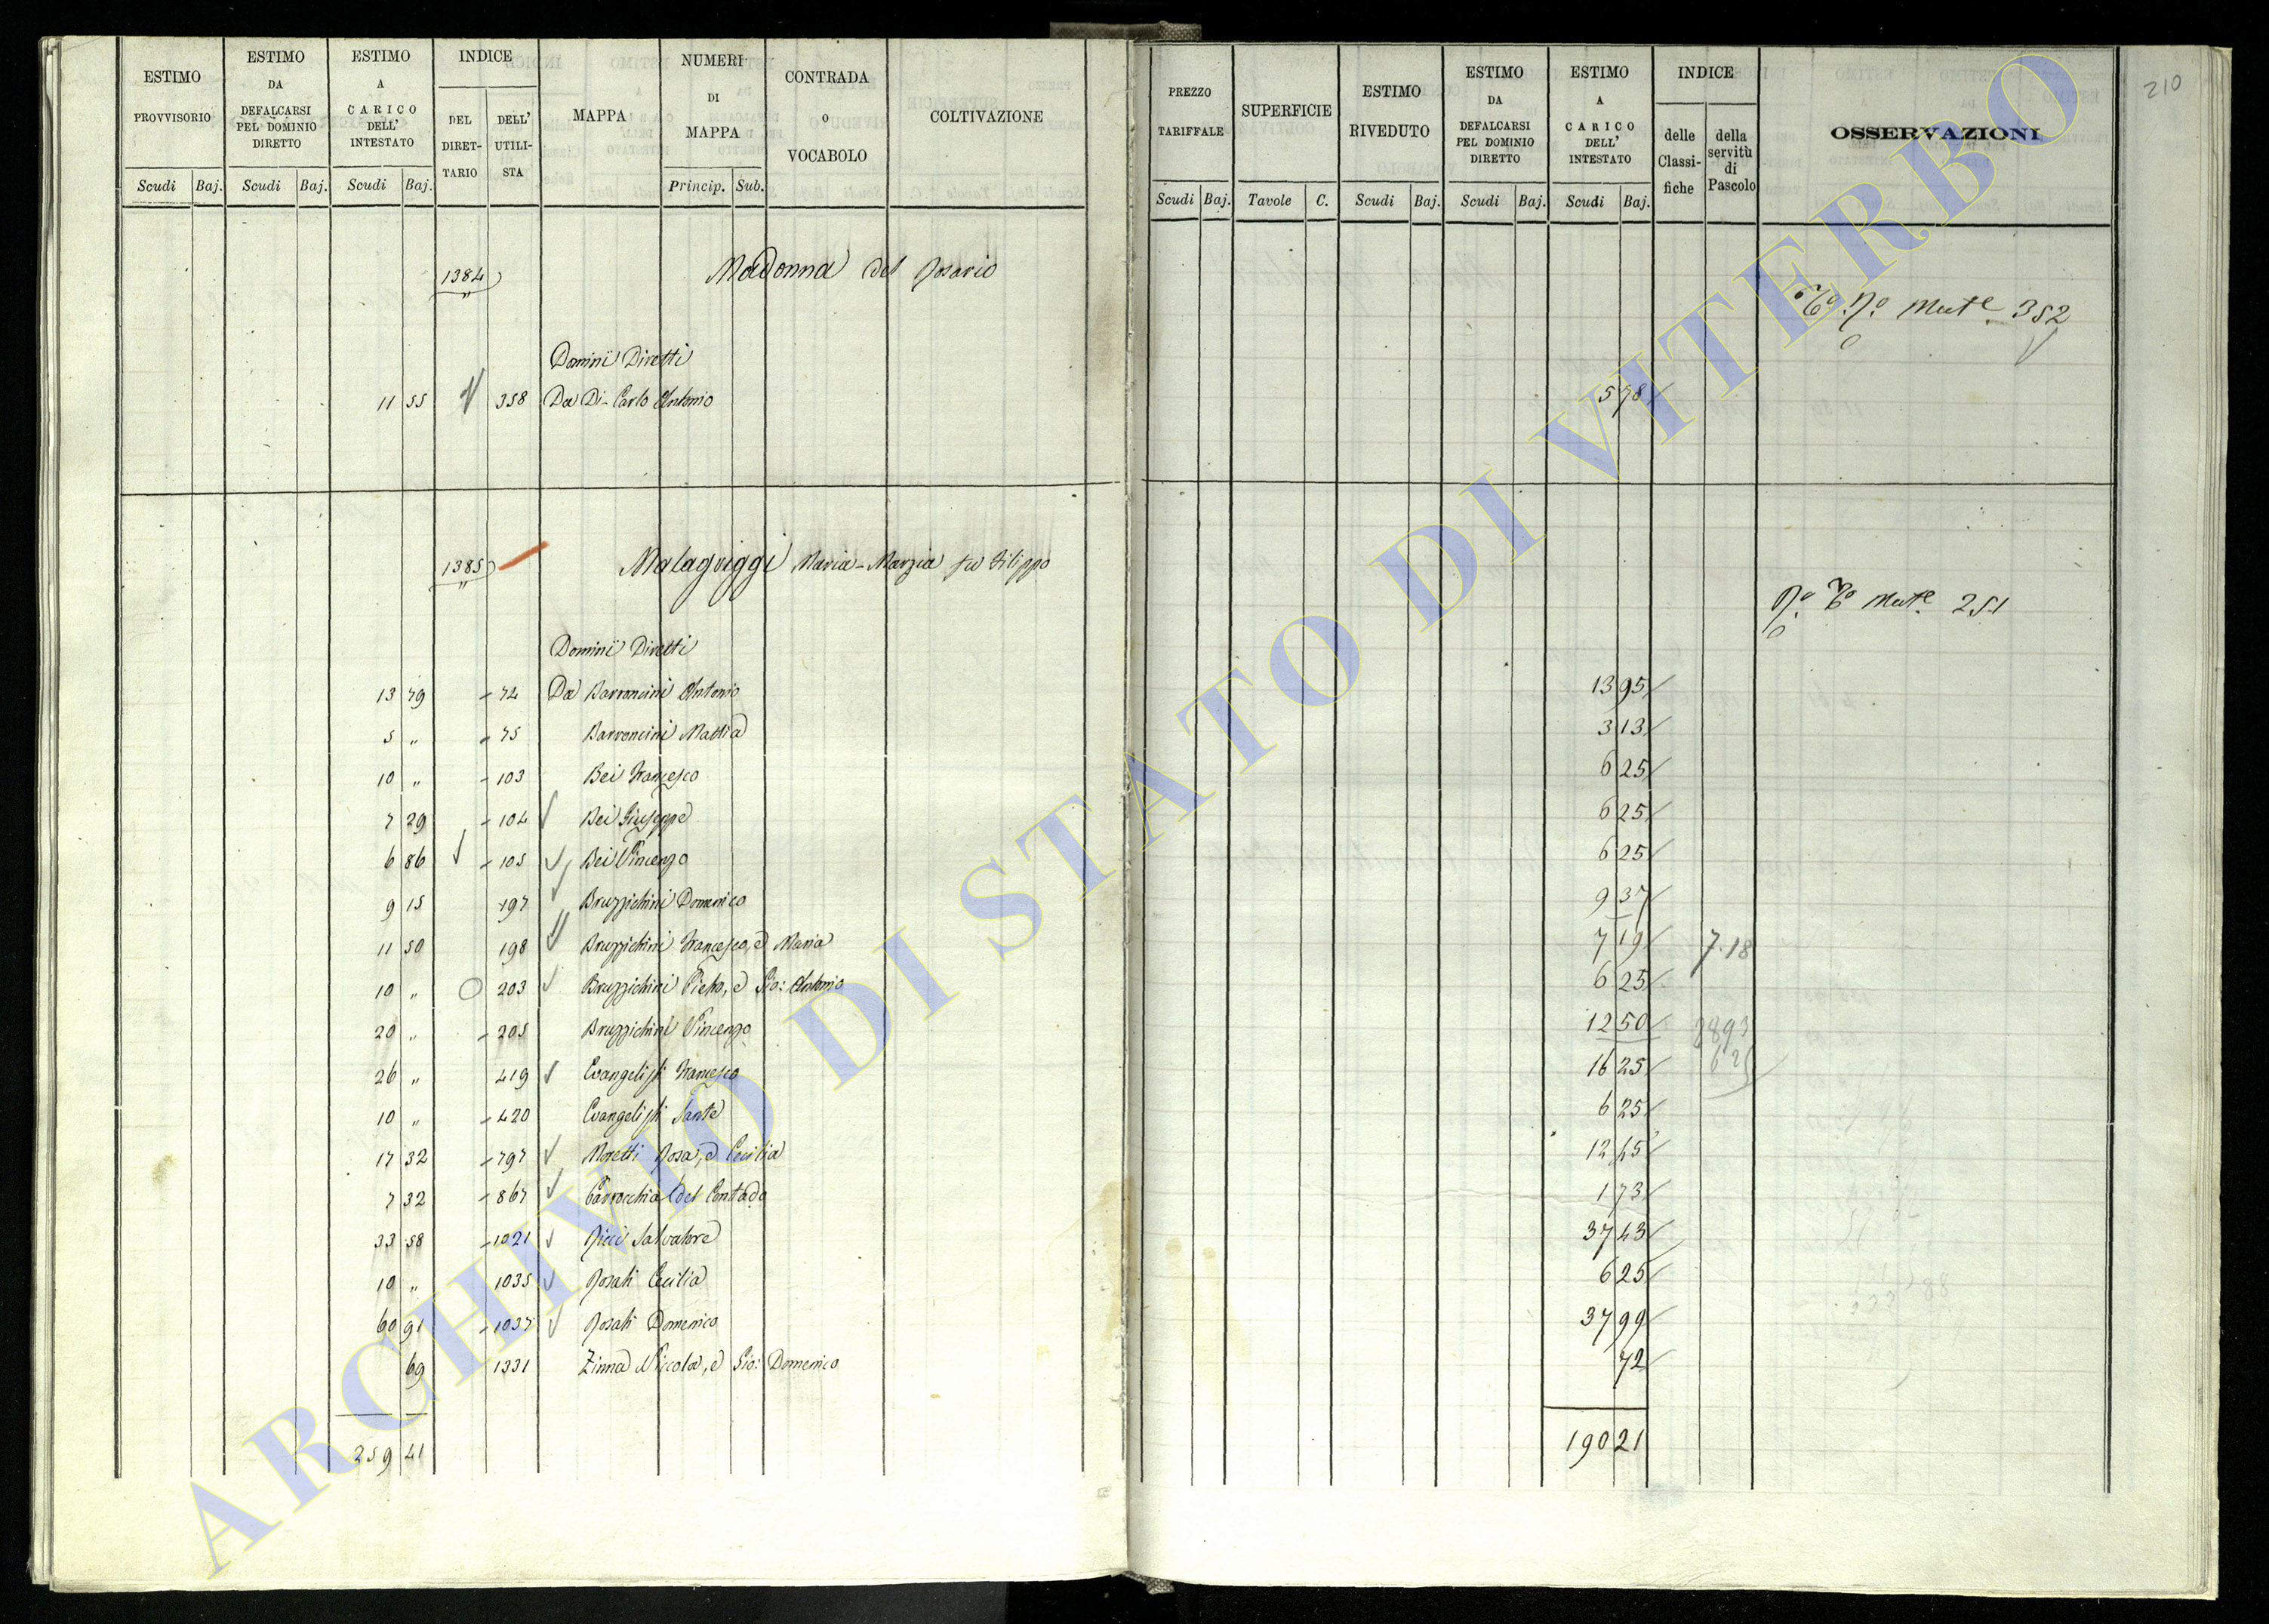 ESTIMO PROVVISORIO
ESTIMO DA DEFALCARSI PEL DOMINIO DIRETTO
ESTIMO A CARICO DELL' INTESTATO
INDICE
DEL DIRET- TARIO
DELL' UTILI- STA
MAPPA
NUMERI DI MAPPA
CONTRADA O VOCABOLO
COLTIVAZIONE
Scudi Baj. Scudi Baj. Scudi Baj. Princip. Sub.
PREZZO TARIFFALE
SUPERFICIE
ESTIMO RIVEDUTO
ESTIMO DA DEFALCARSI PEL DOMINIO DIRETTO
ESTIMO A CARICO DELL' INTESTATO
INDICE
delle Classi- fiche
della servitù di Pascolo
OSSERVAZIONI
Scudi Baj. Tavole C. Scudi Baj. Scudi Baj. Scudi Baj.
210
1384 Madonna del Rosario
Mut.e 352
Dominii Diretti
11 55 358 Da Di-Carlo Antonio 5 78
1385 Malagriggi Maria-Marzia fu Filippo
Mut.e 251
Dominii Diretti
13 79 - 74 Da Barroncini Antonio 13 95
5 „ - 75 Barroncini Mattia 3 13
10 „ - 103 Bei Francesco 6 25
7 29 - 104 Bei Giuseppe 6 25
6 86 - 105 Bei Vincenzo 6 25
9 15 197 Bruzzichini Domenico 9 37
11 50 198 Bruzzichini Francesco, e Maria 7 19 7.18
10 „ 203 Bruzzichini Pietro, e Gio: Antonio 6 25
20 „ - 205 Bruzzichini Vincenzo 12 50
26 „ 419 Evangelisti Francesco 16 25
10 „ - 420 Evangelisti Sante 6 25
17 32 - 797 Moretti Rosa, e Cecilia 12 45
7 32 - 867 Parrocchia del Contado 1 73
33 58 - 1021 Ricci Salvatore 37 43
10 „ 1035 Rosati Cecilia 6 25
60 91 - 1037 Rosati Domenico 37 99
69 1331 Zinna Niccola, e Gio: Domenico 72
259 41 190 21
ARCHIVIO DI STATO DI VITERBO